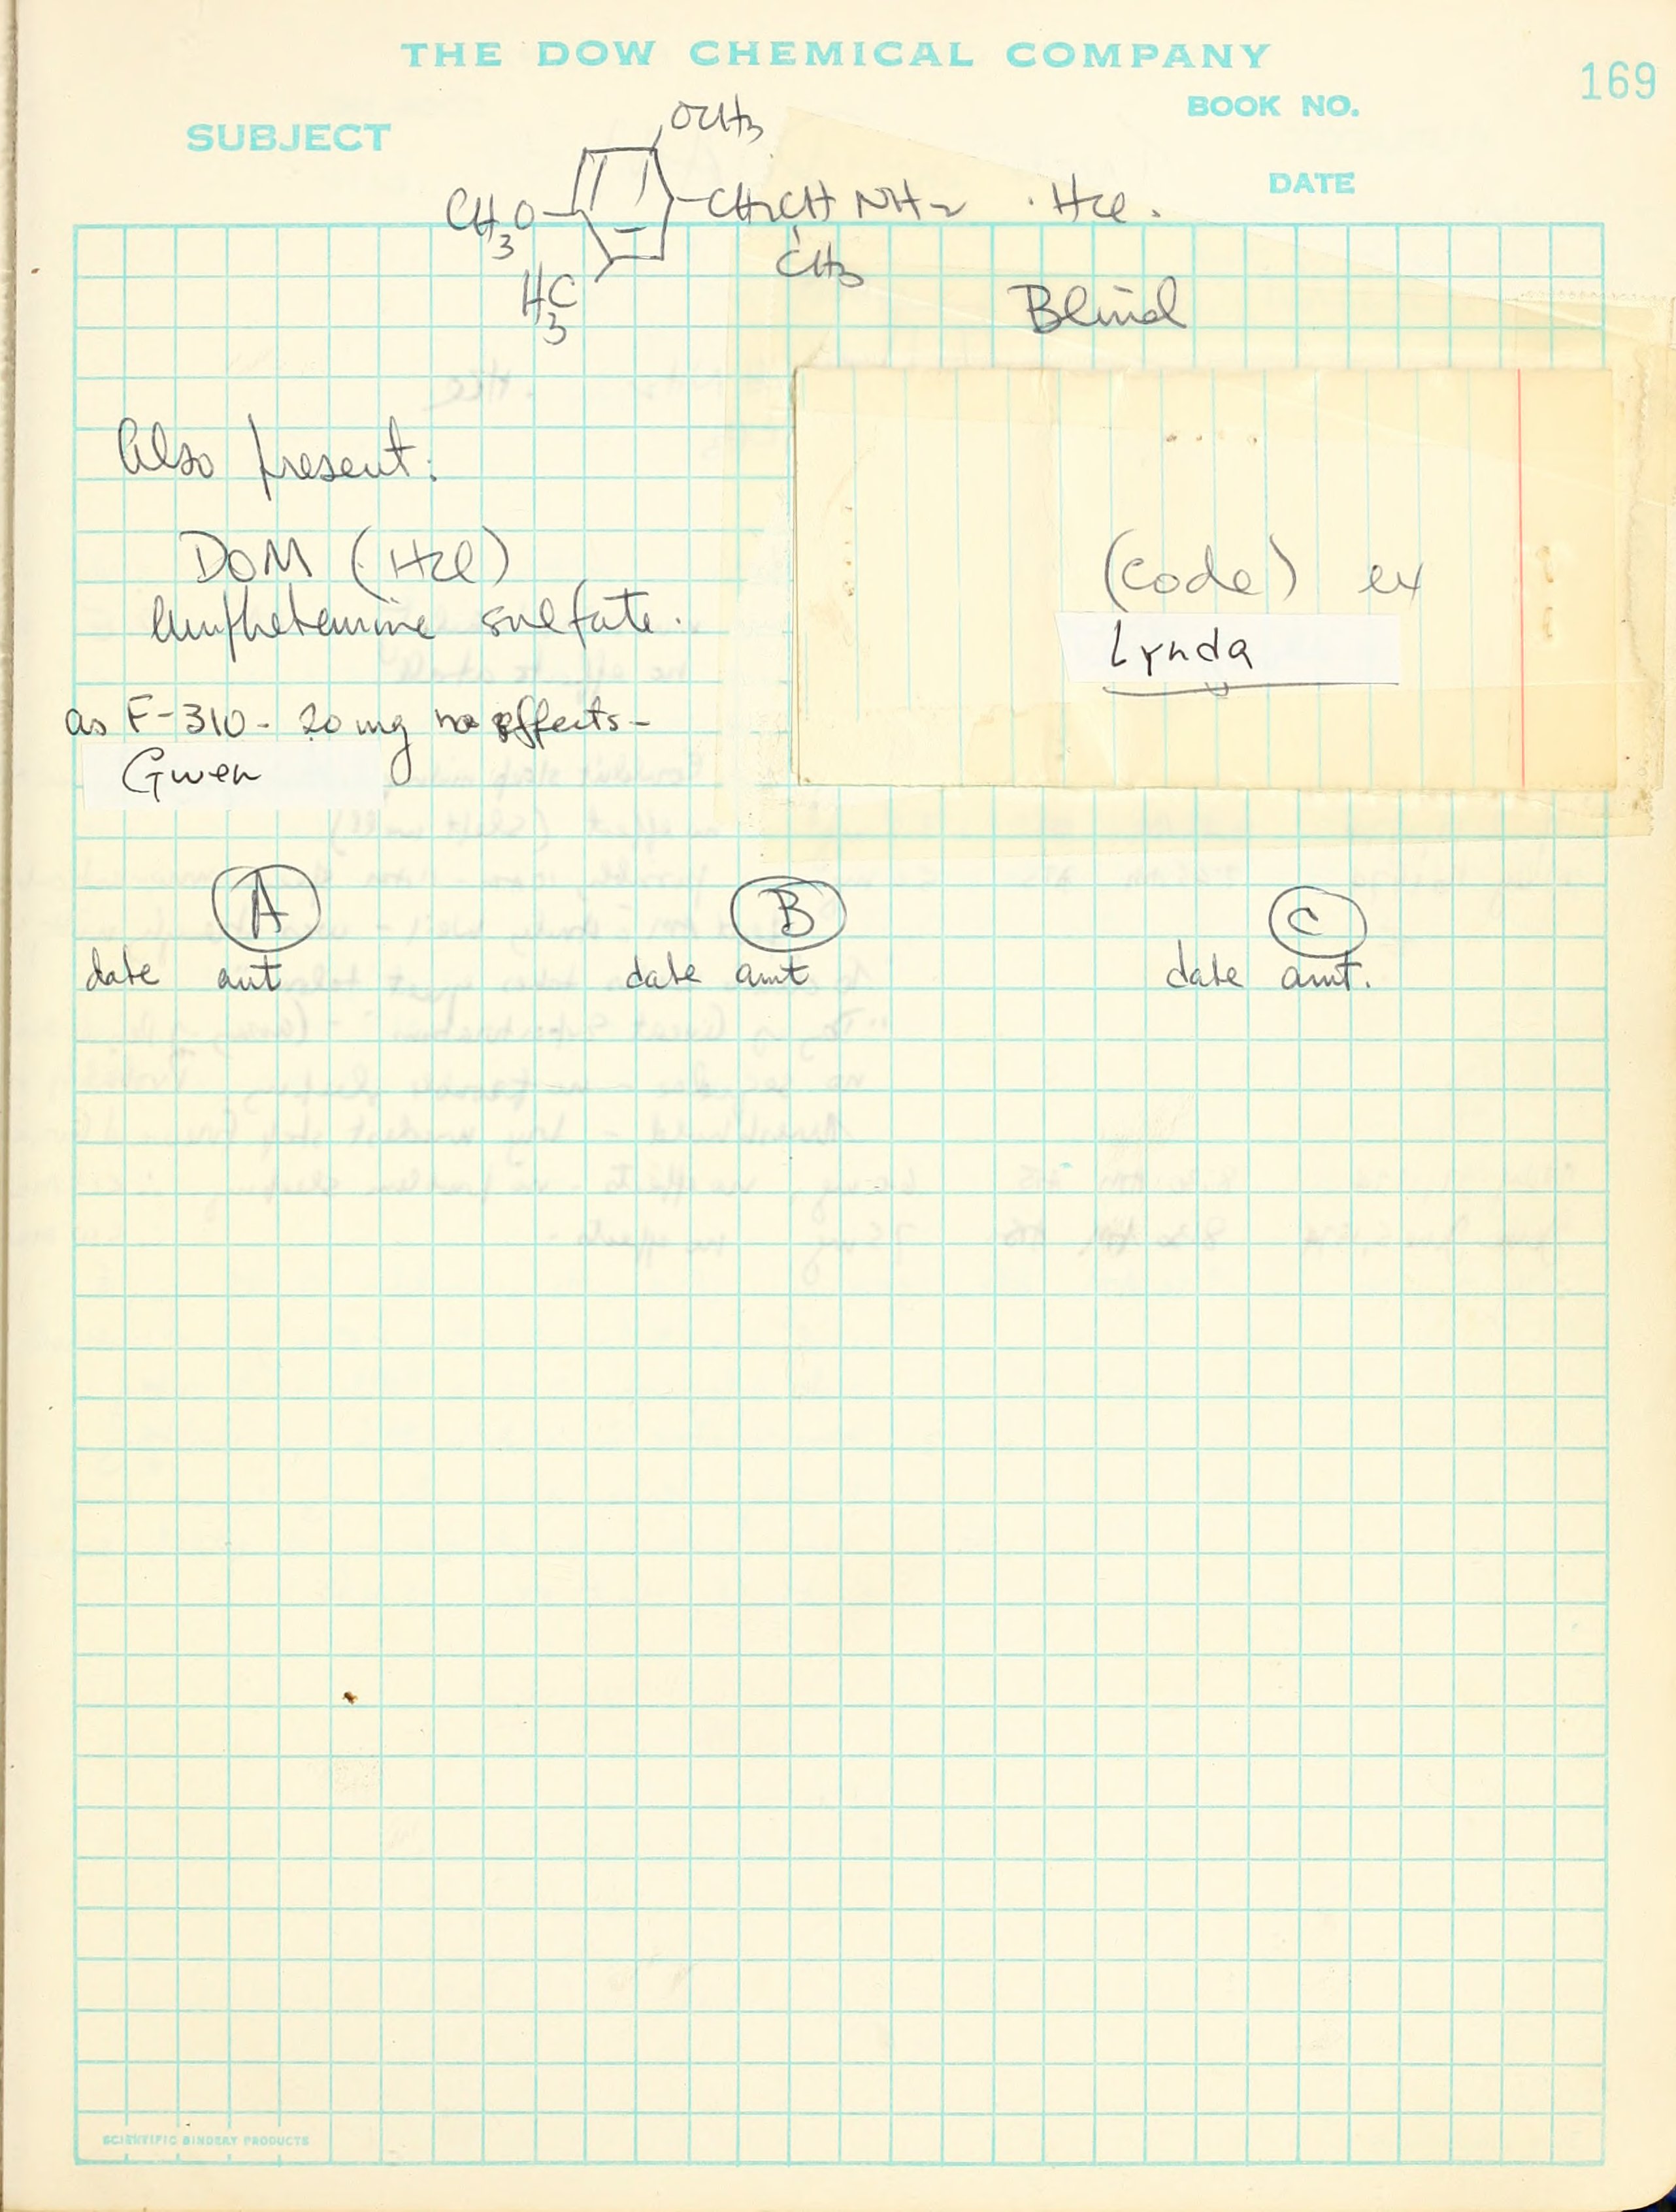 THE DOW CHEMICAL COMPANY
169
BOOK NO.
SUBJECT
DATE
OCH3
CH3O
CH2CH NH2 · HCl.
CH3
H3C
Blind
Also present:
DOM (HCl)
Amphetamine sulfate.
(code) ex
Lynda
as F-310 - 20 mg no effects -
Gwen
A
B
C
date amt
date amt
date amt.
SCIENTIFIC BINDERY PRODUCTS